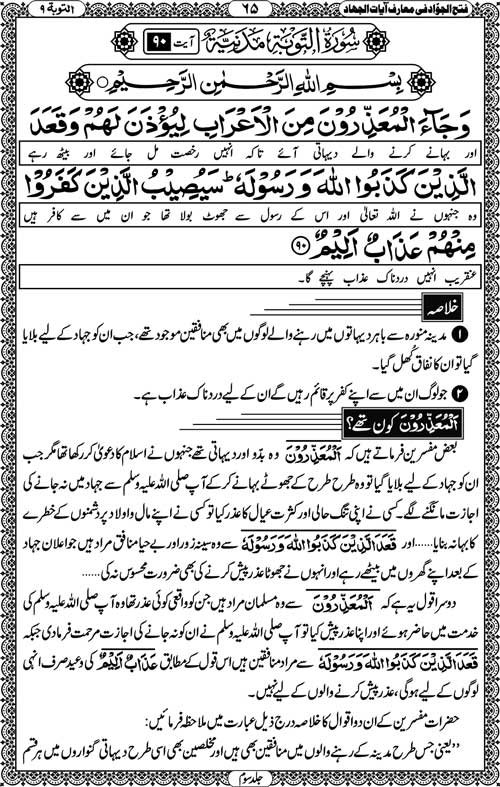 فتح الجوّاد فی معارف آیات الجهاد ۶۵ التوبة ۹
سُوْرَةُ التَّوْبَةِ مَدَنِيَّةٌ آیت ۹۰
بِسْمِ اللهِ الرَّحْمٰنِ الرَّحِيْمِ
وَجَآءَ الْمُعَذِّرُوْنَ مِنَ الْاَعْرَابِ لِيُؤْذَنَ لَهُمْ وَقَعَدَ
اور بہانے کرنے والے دیہاتی آئے تاکہ انہیں رخصت مل جائے اور بیٹھ رہے
الَّذِيْنَ كَذَبُوا اللهَ وَرَسُوْلَهٗ ؕ سَيُصِيْبُ الَّذِيْنَ كَفَرُوْا
وہ جنہوں نے اللہ تعالیٰ اور اس کے رسول سے جھوٹ بولا تھا جو ان میں سے کافر ہیں
مِنْهُمْ عَذَابٌ اَلِيْمٌ ۹۰
عنقریب انہیں دردناک عذاب پہنچے گا۔
خلاصہ
۱ مدینہ منورہ سے باہر دیہاتوں میں رہنے والے لوگوں میں بھی منافقین موجود تھے، جب ان کو جہاد کے لیے بلایا
گیا تو ان کا نفاق کُھل گیا۔
۲ جو لوگ ان میں سے اپنے کفر پر قائم رہیں گے ان کے لیے دردناک عذاب ہے۔
اَلْمُعَذِّرُوْنَ کون تھے؟
بعض مفسرین فرماتے ہیں کہ اَلْمُعَذِّرُوْنَ وہ بدّو اور دیہاتی تھے جنہوں نے اسلام کا دعویٰ کر رکھا تھا مگر جب
ان کو جہاد کے لیے بلایا گیا تو وہ طرح طرح کے جھوٹے بہانے کر کے آپ صلی اللہ علیہ وسلم سے جہاد میں نہ جانے کی
اجازت مانگنے لگے کسی نے اپنی تنگ حالی اور کثرت عیال کا عذر کیا تو کسی نے اپنے مال و اولاد پر دشمنوں کے خطرے
کا بہانہ بنایا......اور قَعَدَ الَّذِيْنَ كَذَبُوا اللهَ وَرَسُوْلَهٗ سے وہ سینہ زور اور بے حیا منافق مراد ہیں جو اعلان جہاد
کے بعد اپنے گھروں میں بیٹھے رہے اور انہوں نے جھوٹا عذر پیش کرنے کی بھی ضرورت محسوس نہ کی......
دوسرا قول یہ ہے کہ اَلْمُعَذِّرُوْنَ سے وہ مسلمان مراد ہیں جن کو واقعی کوئی عذر تھا وہ آپ صلی اللہ علیہ وسلم کی
خدمت میں حاضر ہوئے اور اپنا عذر پیش کیا تو آپ صلی اللہ علیہ وسلم نے ان کو نہ جانے کی اجازت مرحمت فرمادی جبکہ
قَعَدَ الَّذِيْنَ كَذَبُوا اللهَ وَرَسُوْلَهٗ سے مراد منافقین ہیں اس قول کے مطابق عَذَابٌ اَلِيْمٌ کی وعید صرف انہی
لوگوں کے لیے ہوگی، عذر پیش کرنے والوں کے لیے نہیں۔
حضرات مفسرین کے ان دو اقوال کا خلاصہ درج ذیل عبارت میں ملاحظہ فرمائیں:
’’یعنی جس طرح مدینہ کے رہنے والوں میں منافقین بھی ہیں اور مخلصین بھی اسی طرح دیہاتی گنواروں میں ہر قسم
جلد سوم